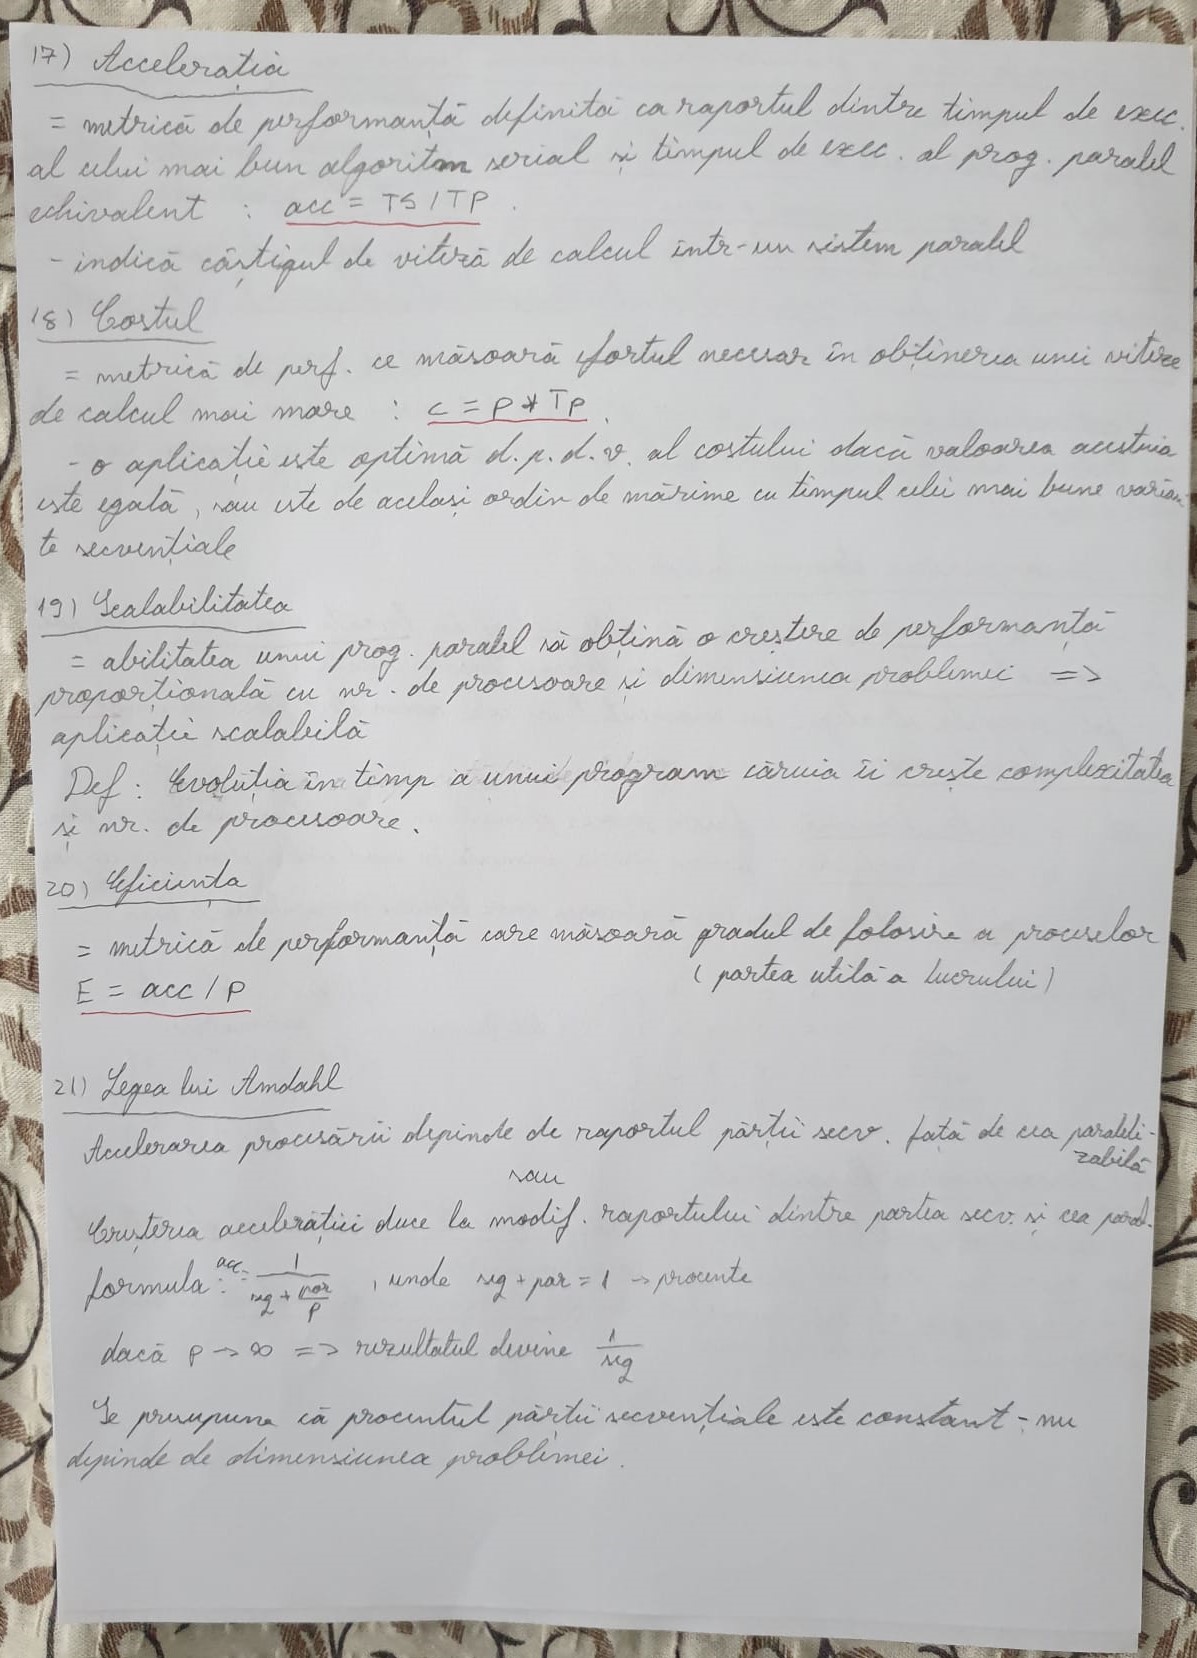 17) Accelerația
= metrică de performanță definită ca raportul dintre timpul de exec.
al celui mai bun algoritm serial și timpul de exec. al prog. paralel
echivalent : acc = TS / TP .
- indică câștigul de viteză de calcul într-un sistem paralel
18) Costul
= metrică de perf. ce măsoară efortul necesar în obținerea unei viteze
de calcul mai mare : c = p * Tp .
- o aplicație este optimă d.p.d.v. al costului dacă valoarea acestuia
este egală, sau este de același ordin de mărime cu timpul celei mai bune varian-
te secvențiale
19) Scalabilitatea
= abilitatea unui prog. paralel să obțină o creștere de performanță
proporțională cu nr. de procesoare și dimensiunea problemei =>
aplicație scalabilă
Def : Evoluția în timp a unui program căruia îi crește complexitatea
și nr. de procesoare.
20) Eficiența
= metrică de performanță care măsoară gradul de folosire a proceselor
(partea utilă a lucrului)
E = acc / p
21) Legea lui Amdahl
Accelerarea procesării depinde de raportul părții secv. față de cea paraleli-
zabilă
sau
Creșterea accelerației duce la modif. raportului dintre partea secv. și cea paral.
formula : acc = 1 / (seg + par/p) , unde seg + par = 1 -> procente
dacă p -> ∞ => rezultatul devine 1/seg
Se presupune că procentul părții secvențiale este constant - nu
depinde de dimensiunea problemei.